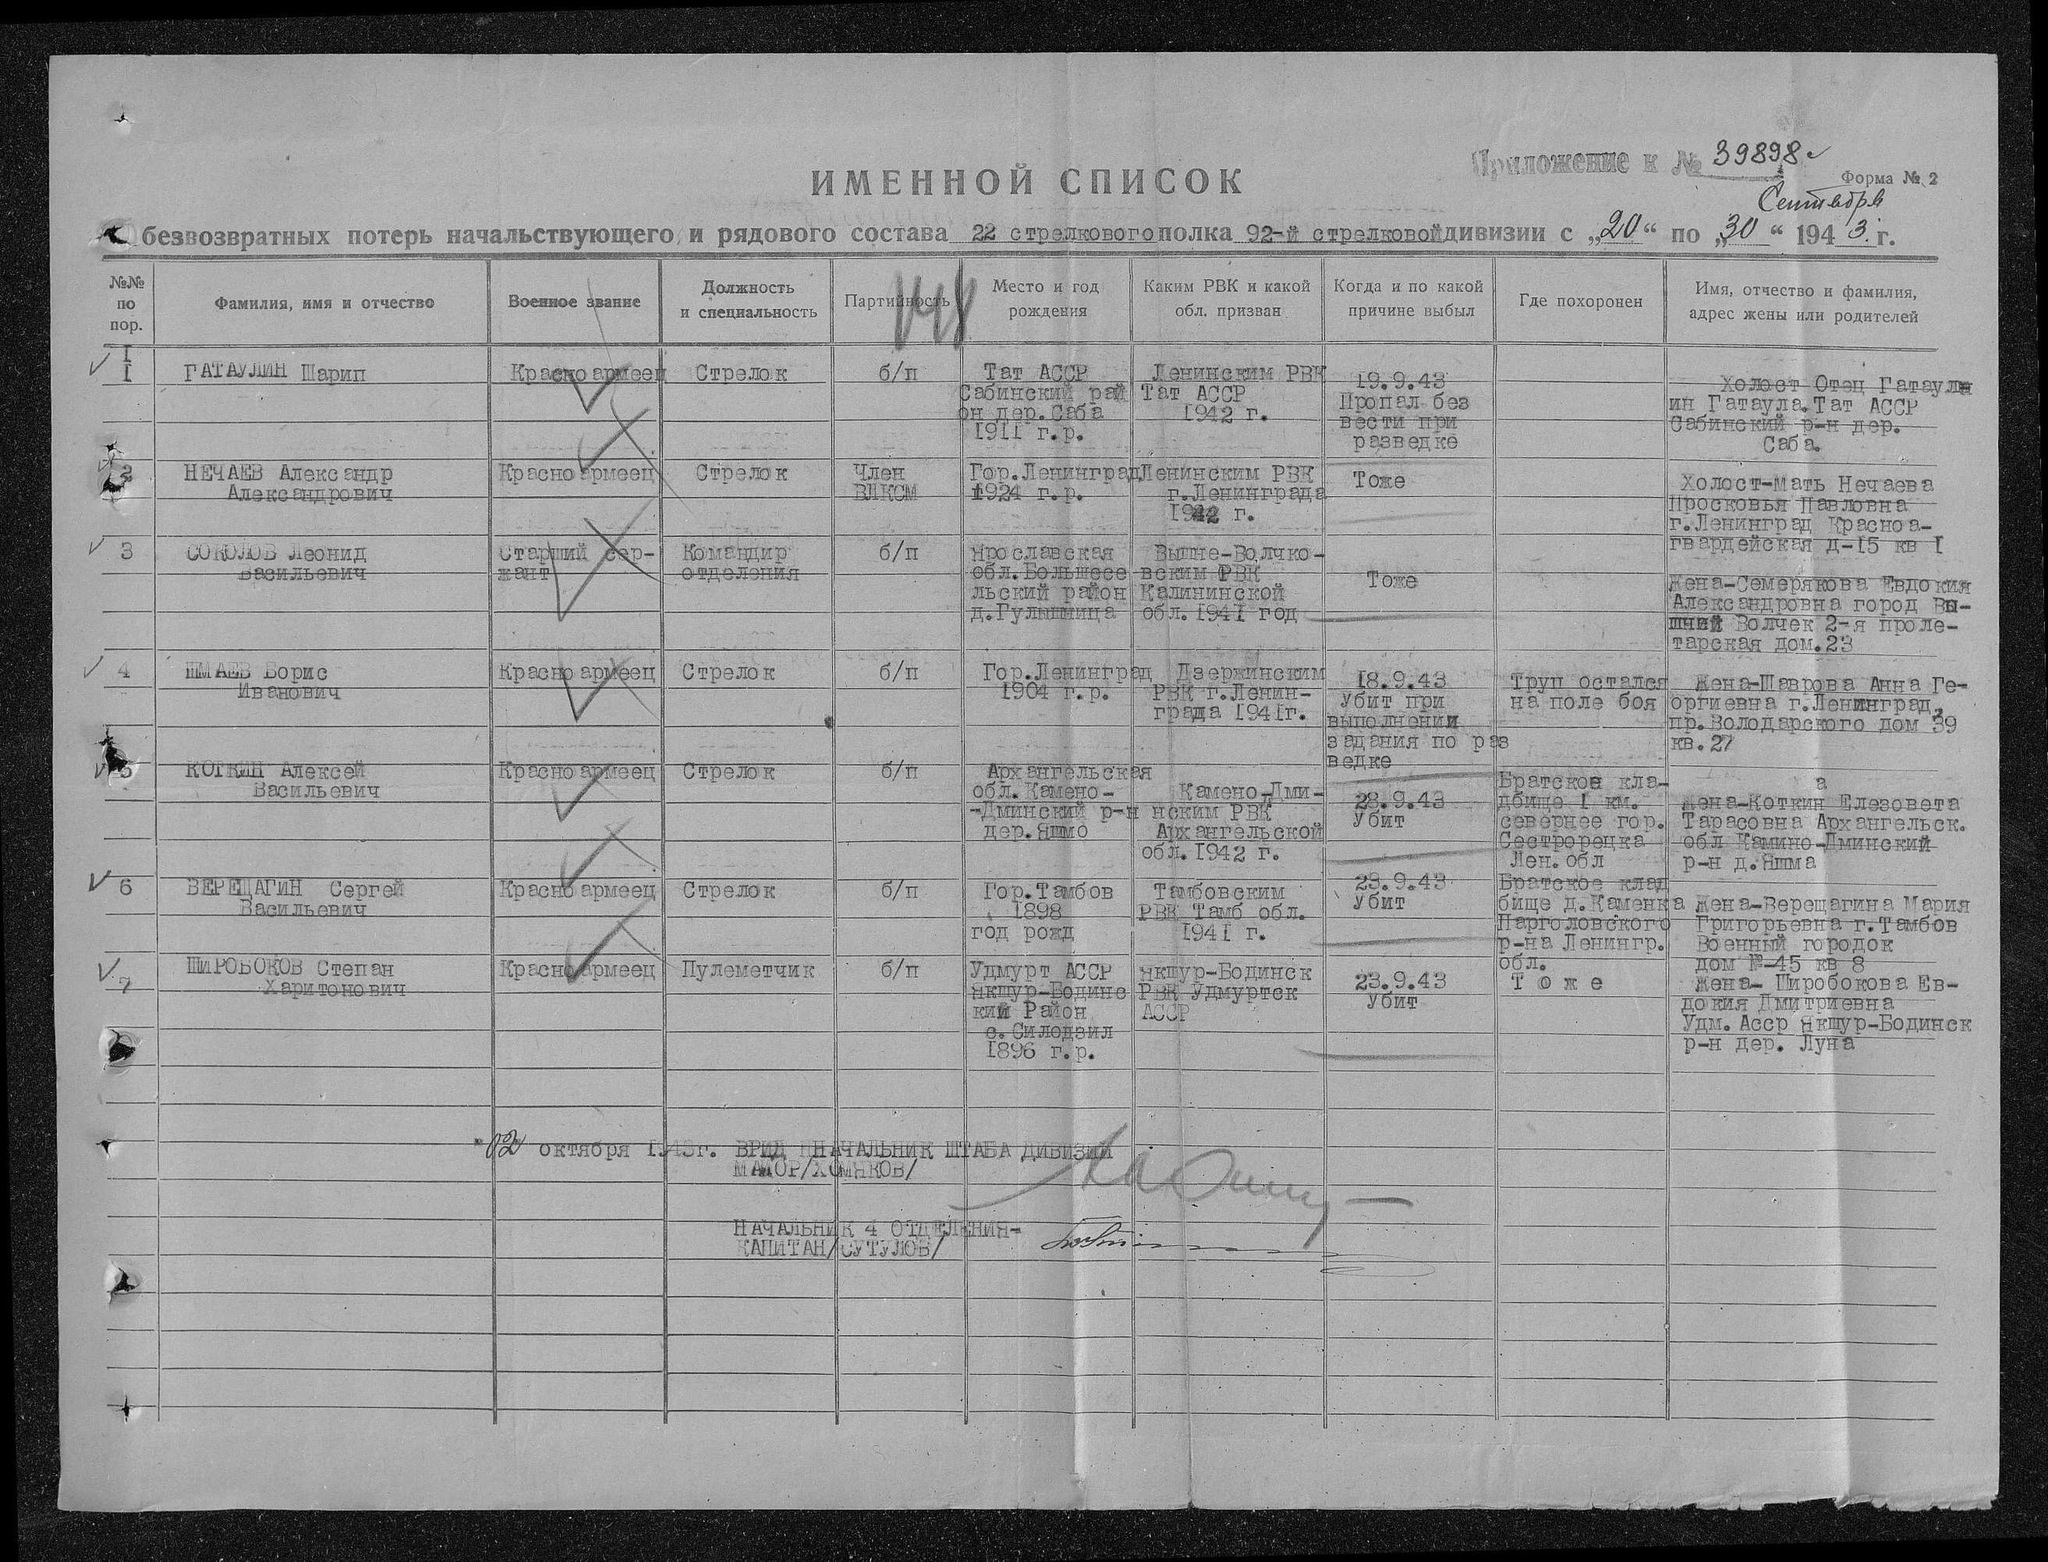 Приложение к № 39898
ИМЕННОЙ СПИСОК
Форма № 2
Сентября
безвозвратных потерь начальствующего и рядового состава 22 стрелкового полка 92-й стрелковой дивизии с „20“ по „30“ 1943 г.
№№ по пор.
Фамилия, имя и отчество
Военное звание
Должность и специальность
Партийность
Место и год рождения
Каким РВК и какой обл. призван
Когда и по какой причине выбыл
Где похоронен
Имя, отчество и фамилия, адрес жены или родителей
148
I
I
ГАТАУЛИН Шарип
Красноармеец
Стрелок
б/п
Тат АССР
Сабинский рай
он дер. Саба
1911 г.р.
Ленинским РВК
Тат АССР
1942 г.
19.9.43
Пропал без
вести при
разведке
Холост Отец Гатаул
ин Гатаула.Тат АССР
Сабинский р-н дер.
Саба.
2
НЕЧАЕВ Александр
Александрович
Красноармеец
Стрелок
Член
ВЛКСМ
Гор.Ленинград
1924 г.р.
Ленинским РВК
г.Ленинграда
1942 г.
Тоже
Холост-Мать Нечаева
Просковья Павловна
г.Ленинград Красноа-
гвардейская д-15 кв I
3
СОКОЛОВ Леонид
Васильевич
Старший сер-
жант
Командир
отделения
б/п
Ярославская
обл.Большесе
льский район
д.Гулышмица
Вышне-Волчко-
вским РВК
Калининской
обл. 1941 год
Тоже
Жена-Семерякова Евдокия
Александровна город Вы-
шчей Волчек 2-я проле-
тарская дом.23
4
ШМАЕВ Борис
Иванович
Красноармеец
Стрелок
б/п
Гор.Ленинград
1904 г.р.
Дзержинским
РВК г.Ленин-
града 1941г.
18.9.43
Убит при
выполнении
задания по раз
ведке
Труп остался
на поле боя
Жена-Шаврова Анна Ге-
оргиевна г.Ленинград,
пр.Володарского дом 39
кв.27
5
КОТКИН Алексей
Васильевич
Красноармеец
Стрелок
б/п
Архангельская
обл.Камено-
-Дминский р-н
дер.Яшмо
Камено-Дми-
нским РВК
Архангельской
обл.1942 г.
28.9.43
Убит
Братское кла-
дбище I км.
севернее гор.
Сестрорецка
Лен.обл
а
Жена-Коткин Елезовета
Тарасовна Архангельск.
обл Камино-Дминский
р-н д.Яшма
6
ВЕРЕЩАГИН Сергей
Васильевич
Красноармеец
Стрелок
б/п
Гор.Тамбов
1898
год рожд
Тамбовским
РВК Тамб обл.
1941 г.
23.9.43
Убит
Братское клад
бище д.Каменка
Парголовского
р-на Ленингр.
обл.
Жена-Верещагина Мария
Григорьевна г.Тамбов
Военный городок
дом №-45 кв 8
7
ШИРОБОКОВ Степан
Харитонович
Красноармеец
Пулеметчик
б/п
Удмурт АССР
Якшур-Бодинс
кий Район
с.Силодзил
1896 г.р.
Якшур-Бодинск
РВК Удмуртск
АССР
23.9.43
Убит
Тоже
Жена- Широбокова Ев-
докия Дмитриевна
Удм. Асср Якшур-Бодинск
р-н дер. Луна
"02" октября 1943г. ВРИД НАЧАЛЬНИК ШТАБА ДИВИЗИИ
МАЙОР/ХОМЯКОВ/
НАЧАЛЬНИК 4 ОТДЕЛЕНИЯ-
КАПИТАН/СУТУЛОВ/